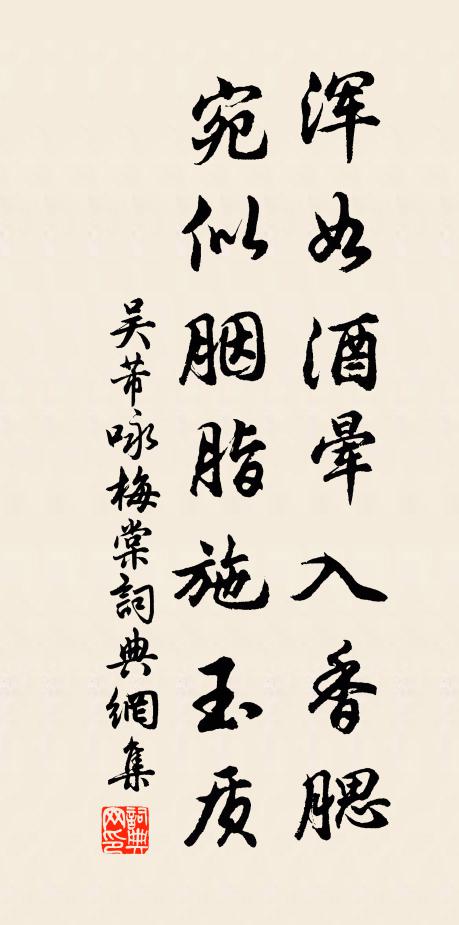 浑如酒晕入香腮
宛似胭脂施玉质
吴芾咏梅棠詞典網集
詞典
网印